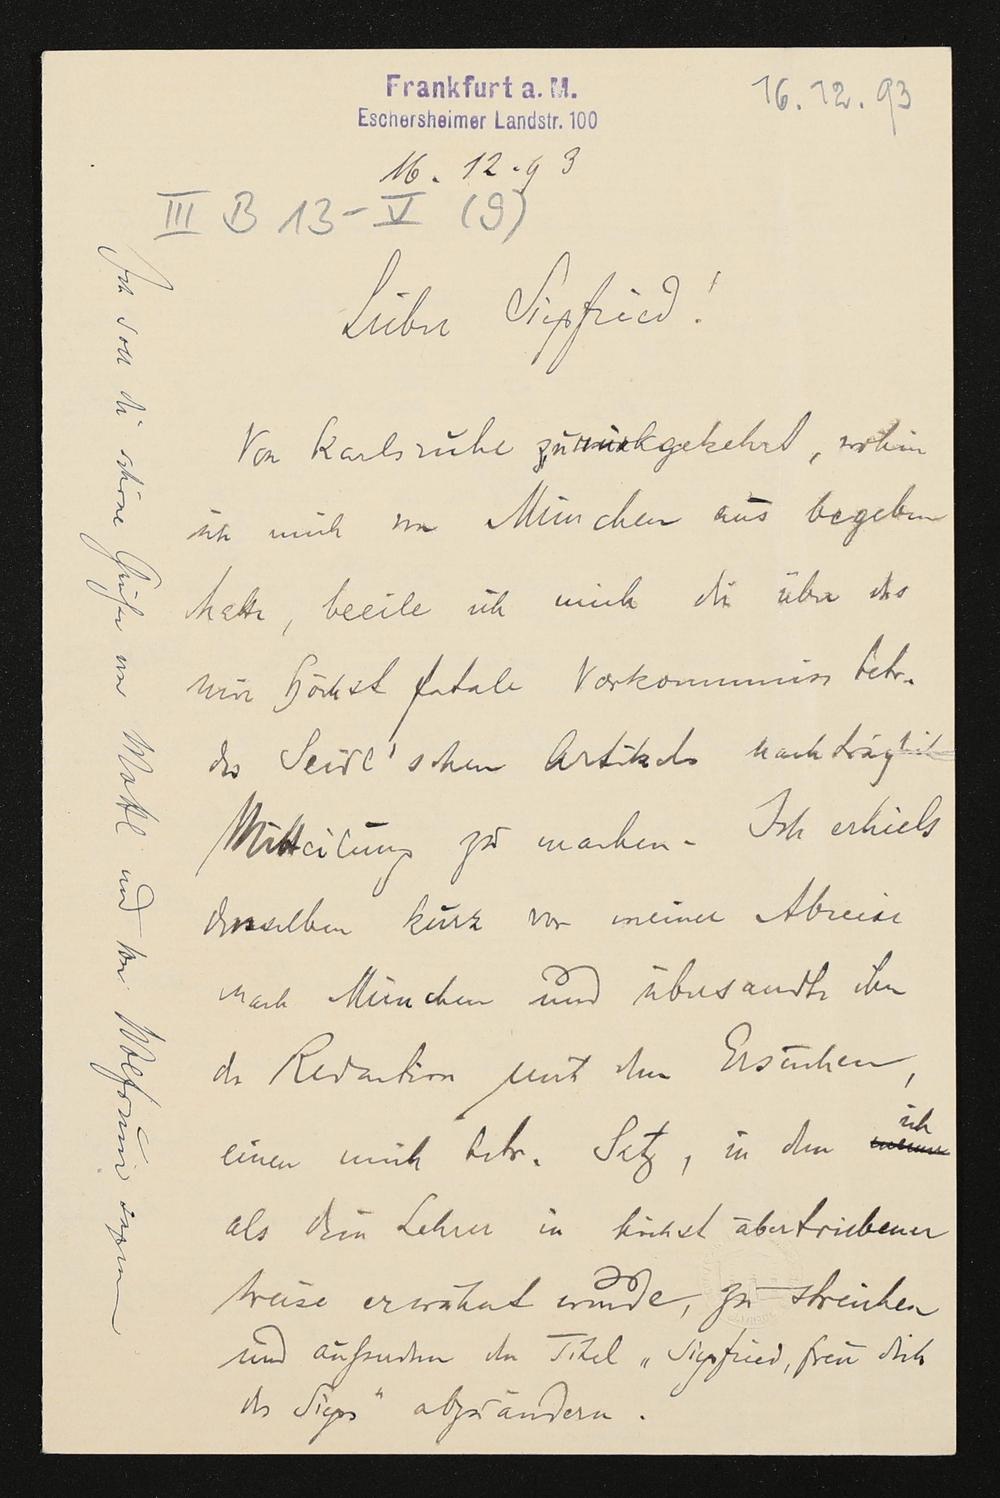 Frankfurt a. M.
Eschersheimer Landstr. 100
16. 12. 93
16. 12. 93
III B 13-V (9)
Lieber Siegfried!
Von Karlsruhe zurückgekehrt, wohin
ich mich von München aus begeben
hatte, beeile ich mich dir über das
mir höchst fatale Vorkommniss betr.
des Seidl'schen Artikels nachträglich
Mitteilung zu machen. Ich erhielt
denselben kurz vor meiner Abreise
nach München und übersandte ihn
der Redaction mit dem Ersuchen,
einen mich betr. Satz, in dem ich
als dein Lehrer in höchst übertriebener
Weise erwähnt wurde, zu streichen
und ausserdem den Titel „Siegfried, freu dich
des Siegs" abzuändern.
Ich soll dir schöne Grüße von Mottl und von Wolfrum sagen